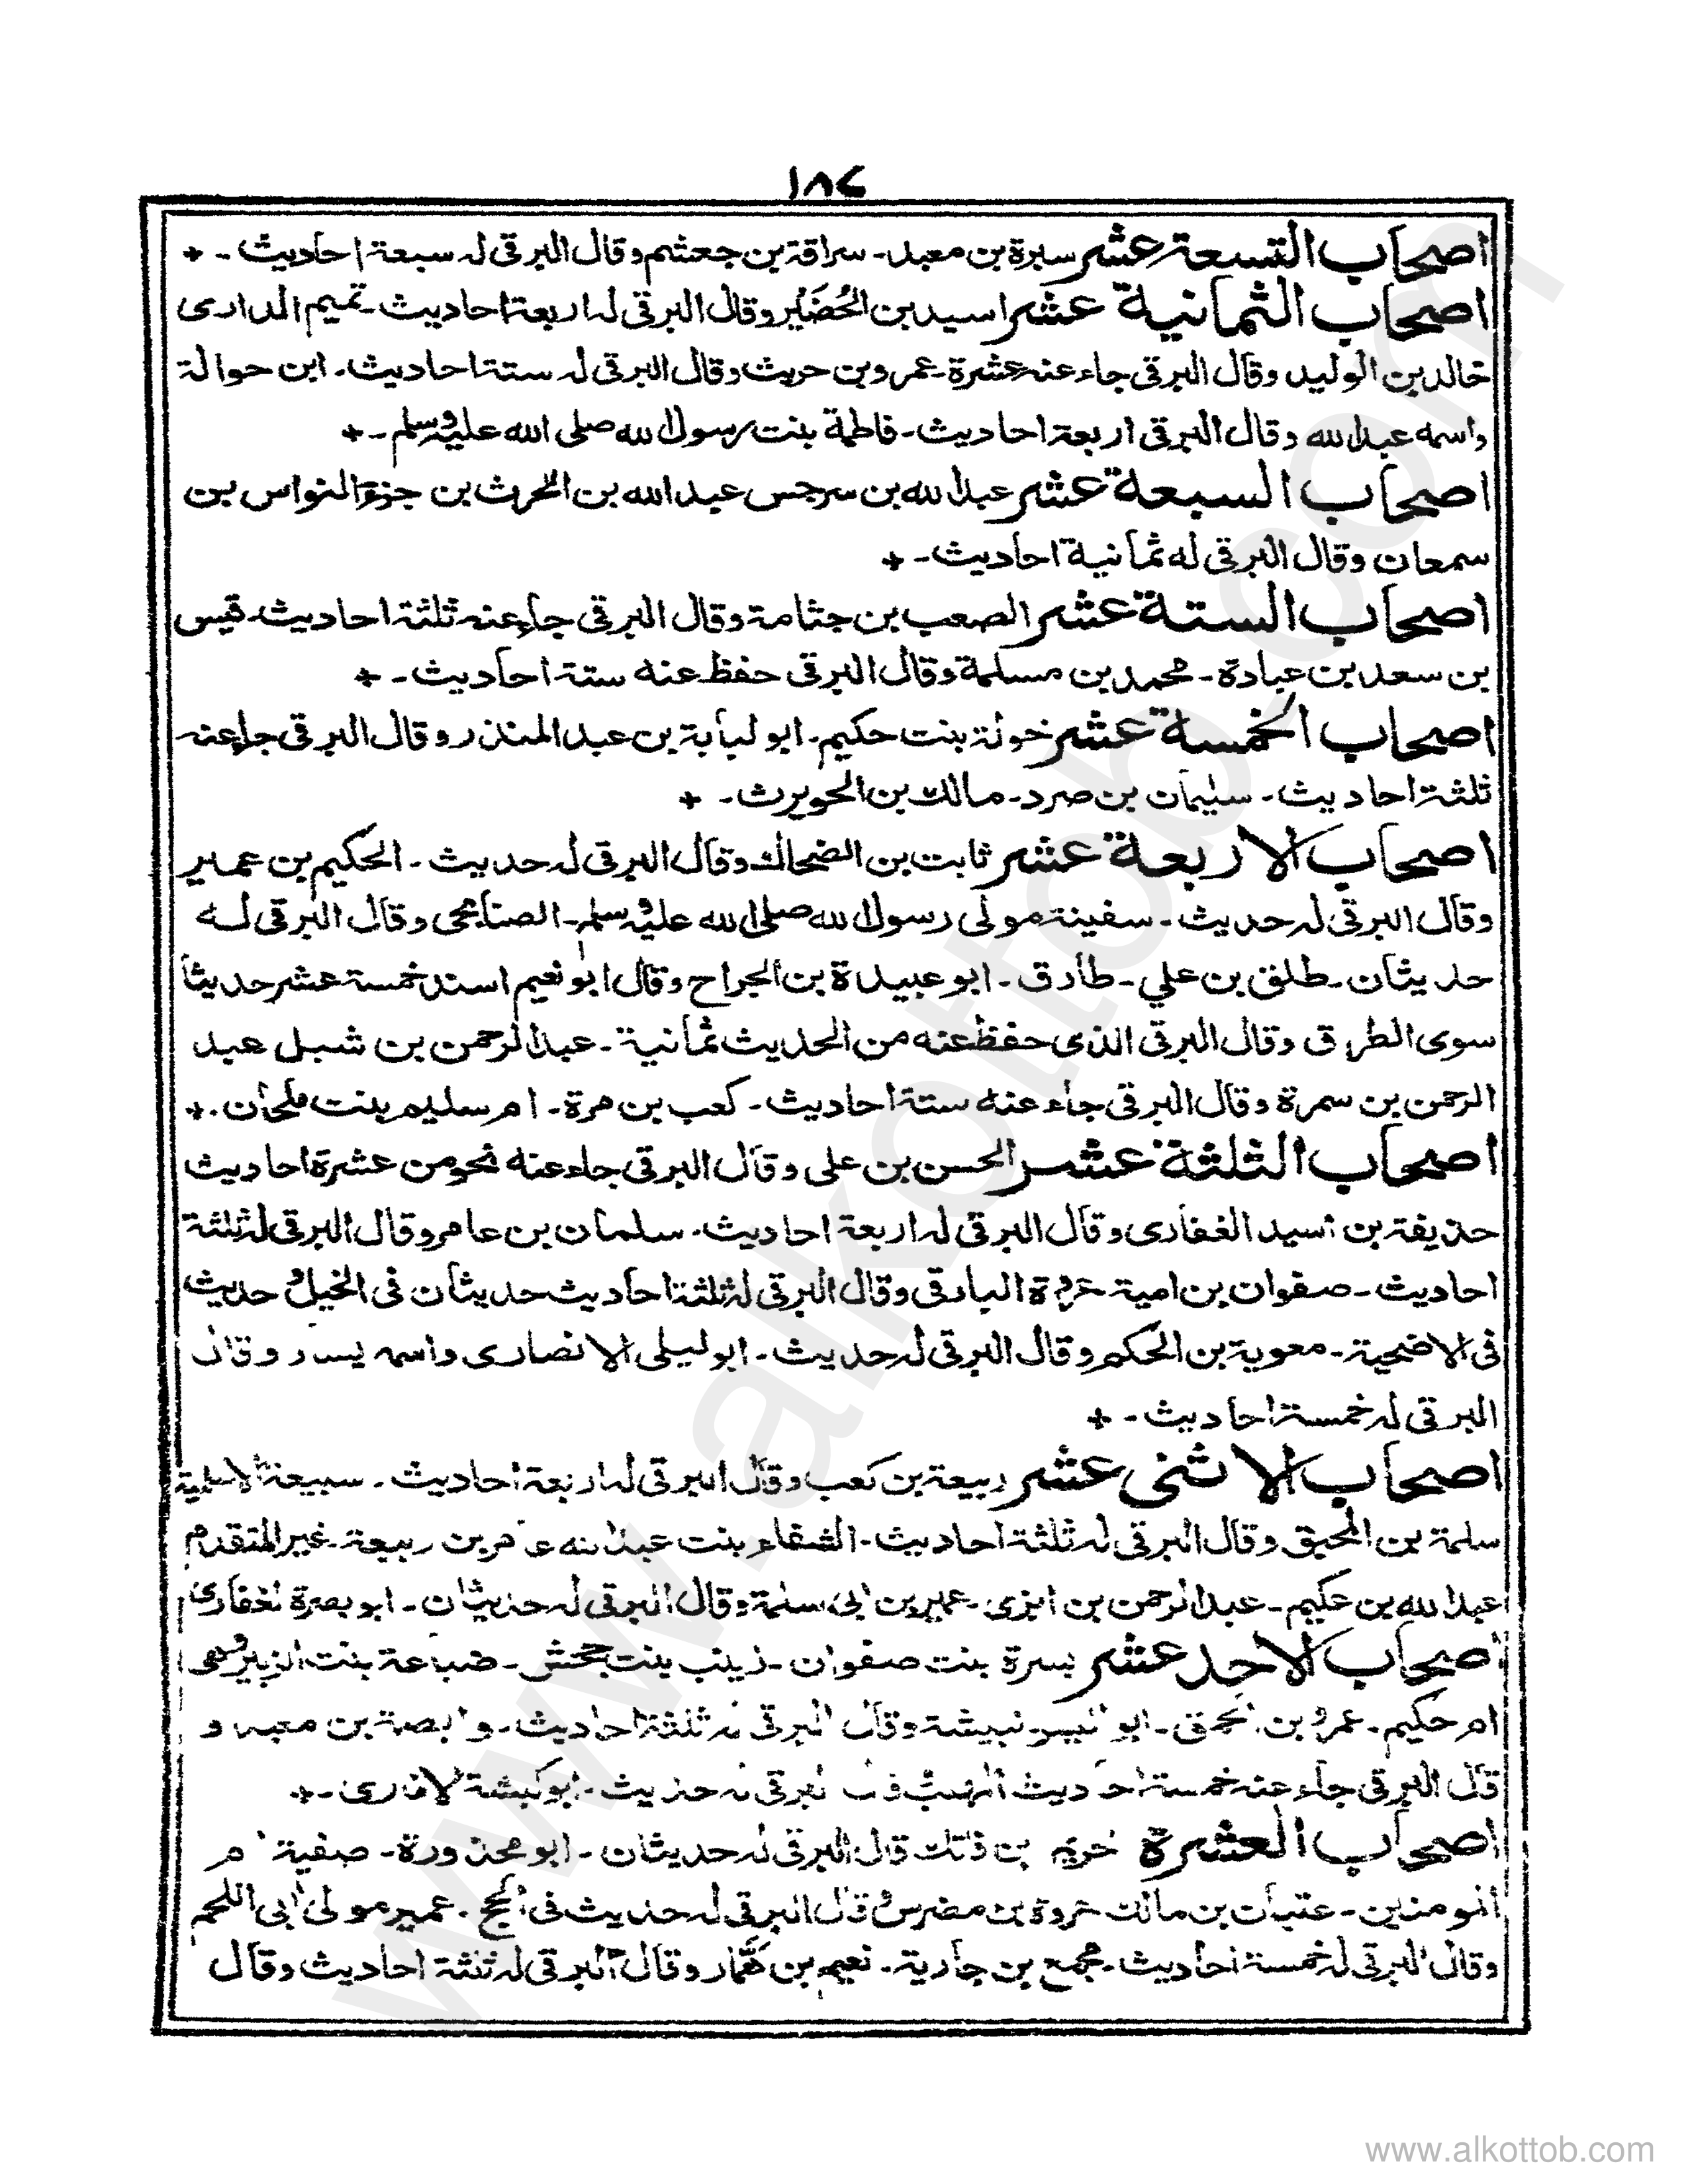 ١٨٤
اصحاب التسعة عشر سبرة بن معبد - سراقة بن جعشم وقال البرقى له سبعة احاديث - +
اصحاب الثمانية عشر اسيد بن الحُضَير وقال البرقى له اربعة احاديث - تميم الدارى
خالد بن الوليد وقال البرقى جاء عنه عشرة - عمرو بن حريث وقال البرقى له ستة احاديث - ابن حوالة
واسمه عبد الله وقال البرقى اربعة احاديث - فاطمة بنت رسول الله صلى الله عليه وسلم - +
اصحاب السبعة عشر عبد الله بن سرجس عبد الله بن الحرث بن جزء النواس بن
سمعان وقال البرقى له ثمانية احاديث - +
اصحاب الستة عشر الصعب بن جثامة وقال البرقى جاء عنه ثلثة احاديث - قيس
بن سعد بن عبادة - محمد بن مسلمة وقال البرقى حفظ عنه ستة احاديث - +
اصحاب الخمسة عشر خولة بنت حكيم - ابو لبابة بن عبد المنذر وقال البرقى جاء عنه
ثلثة احاديث - سليمان بن صرد - مالك بن الحويرث - +
اصحاب الاربعة عشر ثابت بن الضحاك وقال البرقى له حديث - الحكيم بن عمير
وقال البرقى له حديث - سفينة مولى رسول الله صلى الله عليه وسلم - الصنابحى وقال البرقى له
حديثان - طلق بن علي - طارق - ابو عبيدة بن الجراح وقال ابو نعيم اسند خمسة عشر حديثا
سوى الطرق وقال البرقى الذى حفظ عنه من الحديث ثمانية - عبد الرحمن بن شبل عبد
الرحمن بن سمرة وقال البرقى جاء عنه ستة احاديث - كعب بن مرة - ام سليم بنت ملحان - +
اصحاب الثلثة عشر الحسن بن على وقال البرقى جاء عنه نحو من عشرة احاديث
حذيفة بن اسيد الغفارى وقال البرقى له اربعة احاديث - سلمان بن عامر وقال البرقى له ثلثة
احاديث - صفوان بن امية البارقى وقال البرقى له ثلثة احاديث حديثان فى الخيل و حديث
فى الاضحية - معوية بن الحكم وقال البرقى له حديث - ابو ليلى الانصارى واسمه يسار وقال
البرقى له خمسة احاديث - +
اصحاب الاثنى عشر ربيعة بن كعب وقال البرقى له اربعة احاديث - سبيعة الاسلمية
سلمة بن المحبق وقال البرقى له ثلثة احاديث - الشفاء بنت عبد الله عامر بن ربيعة - غير المتقدم
عبد الله بن عكيم - عبد الرحمن بن ابزى - عمير بن ابى سلمة وقال البرقى له حديثان - ابو بصرة الغفارى
اصحاب الاحد عشر بسرة بنت صفوان - زينب بنت جحش - ضباعة بنت الزبير وهى
ام حكيم - عمرو بن الحمق - ابو اليسر - نبيشة وقال البرقى له ثلثة احاديث - وابصة بن معبد و
قال البرقى جاء عنه خمسة احاديث البرقى له حديث - ابو كبشة الانمارى - +
اصحاب العشرة خريم بن فاتك قال البرقى له حديثان - ابو محذورة - صفية ام
المومنين - عتبان بن مالك عروة بن مضرس قال البرقى له حديث فى الحج - عمير مولى ابى اللحم
وقال البرقى له خمسة احاديث - مجمع بن جارية - نعيم بن همار وقال البرقى له ثلثة احاديث وقال
www.alkottob.com
www.alkottob.com